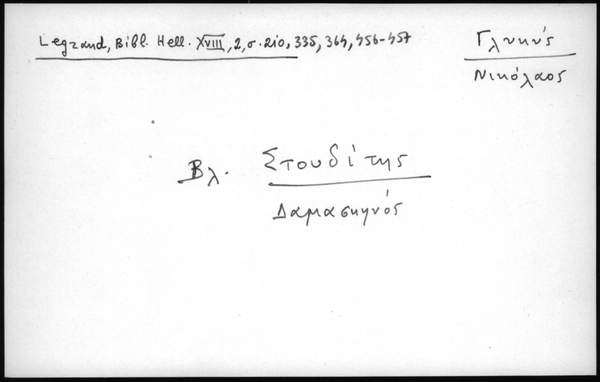 Legrand, Bibl. Hell. XVIII, 2, σ. 210, 335, 364, 456-457
Γλυκύς
Νικόλαος
Βλ. Στουδίτης
Δαμασκηνός